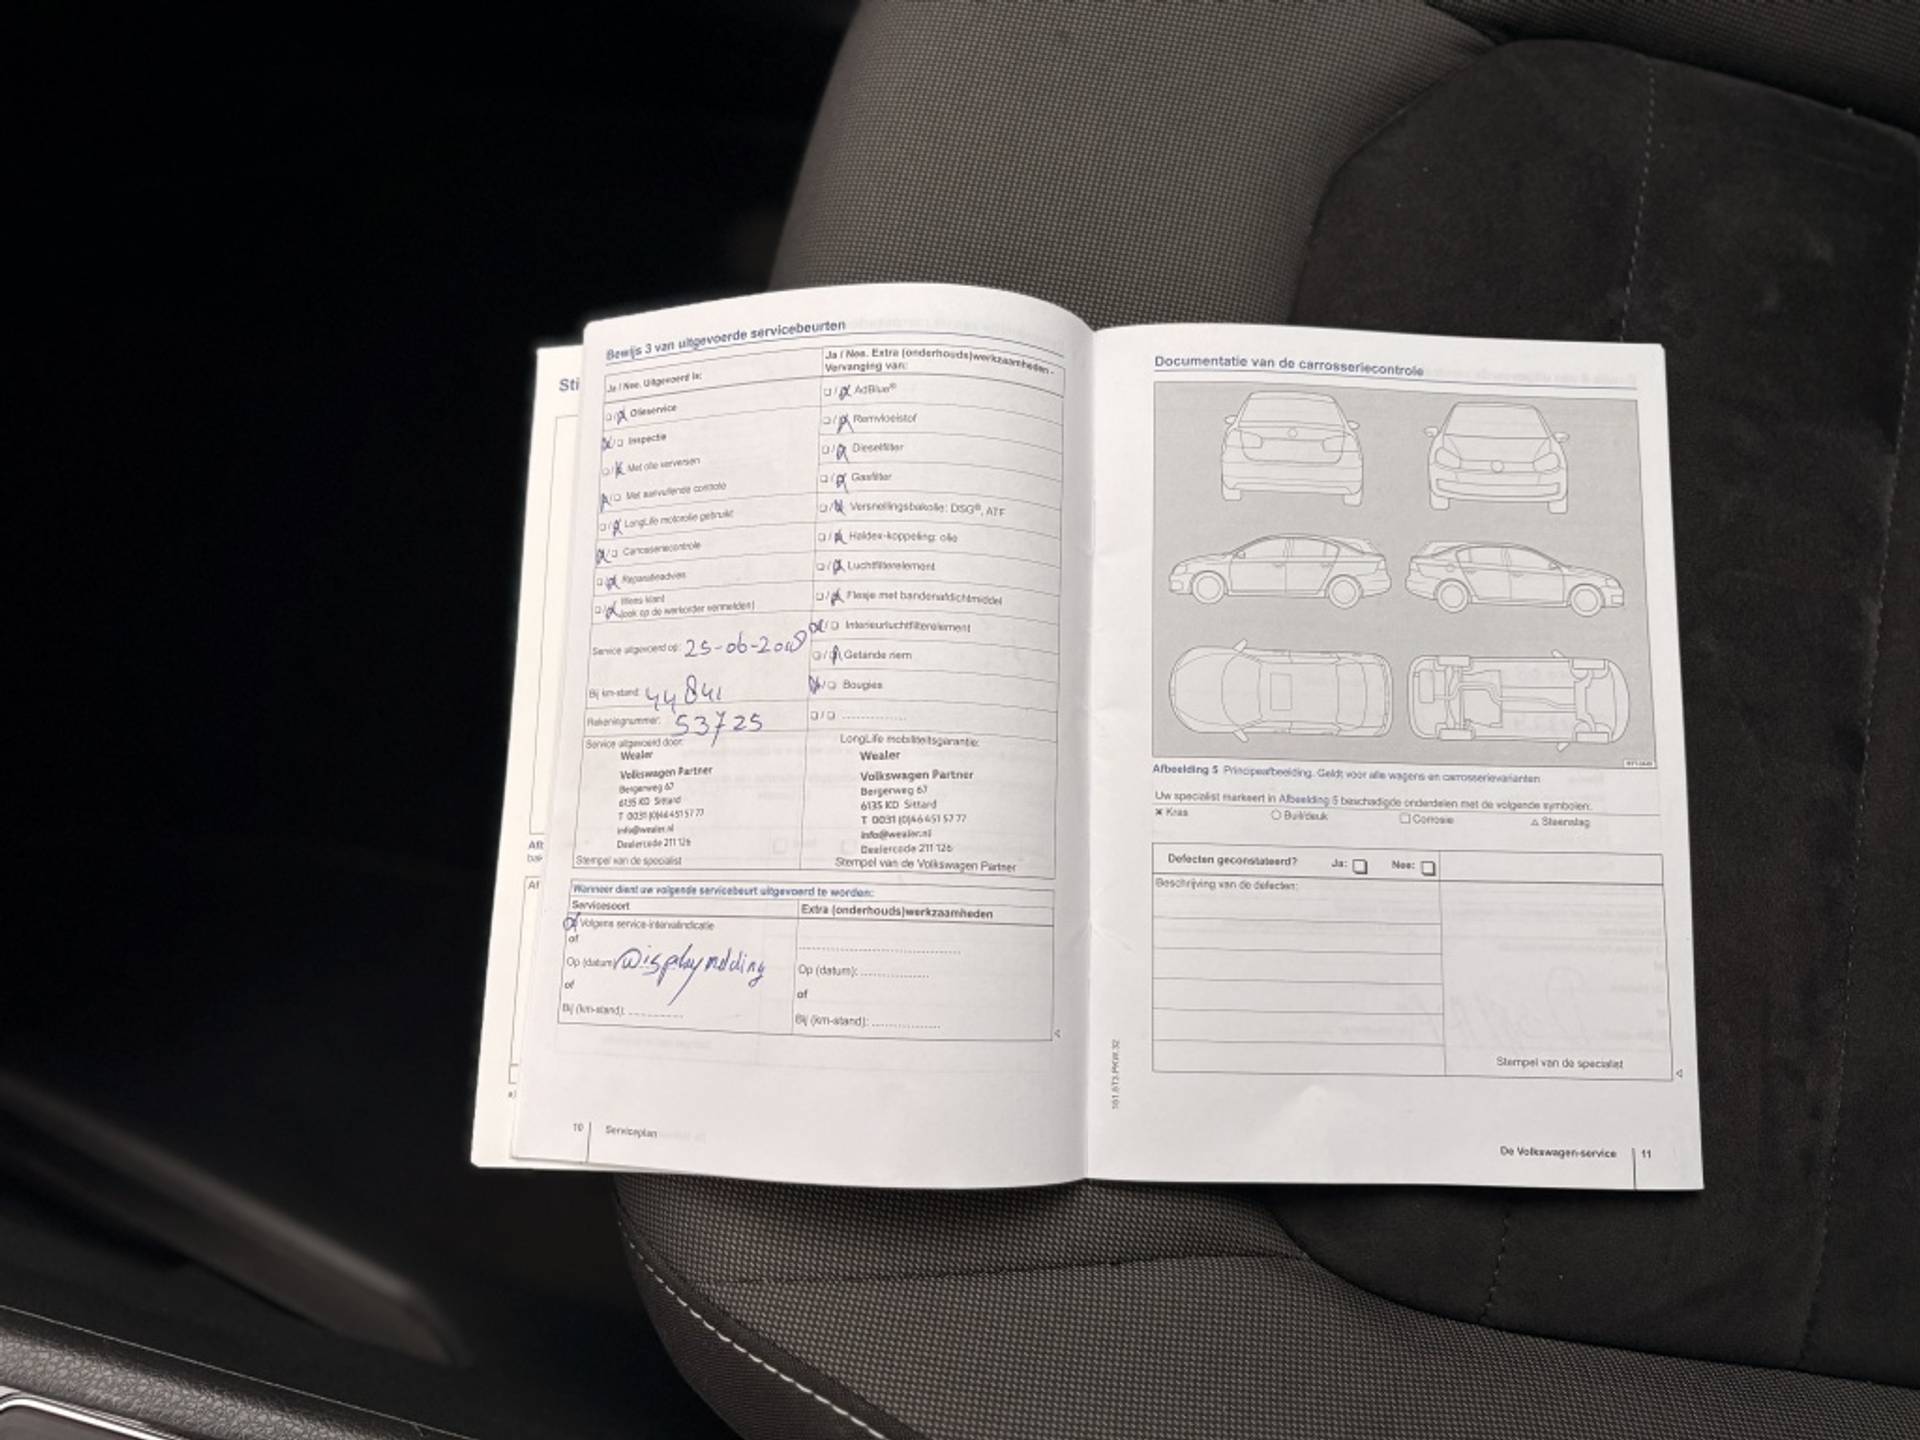 Sti
Bewijs 3 van uitgevoerde servicebeurten
Ja / Nee. Uitgevoerd is:
Olieservice
Inspectie
Met olie verversen
Met aanvullende controle
LongLife motorolie gebruikt
Carrosseriecontrole
Reparatieadvies
Wens klant
(ook op de werkorder vermelden)
Service uitgevoerd op: 25-06-2018
Bij km-stand: 44841
Rekeningnummer: 53725
Service uitgevoerd door:
Wealer
Volkswagen Partner
Bergerweg 67
6135 KD Sittard
T 0031 (0)46 451 57 77
info@wealer.nl
Dealercode 211 126
Stempel van de specialist
Ja / Nee. Extra (onderhouds)werkzaamheden -
Vervanging van:
AdBlue®
Remvloeistof
Dieselfilter
Gasfilter
Versnellingsbakolie: DSG®, ATF
Haldex-koppeling: olie
Luchtfilterelement
Flesje met bandenafdichtmiddel
Interieurluchtfilterelement
Getande riem
Bougies
LongLife mobiliteitsgarantie:
Wealer
Volkswagen Partner
Bergerweg 67
6135 KD Sittard
T 0031 (0)46 451 57 77
info@wealer.nl
Dealercode 211 126
Stempel van de Volkswagen Partner
Wanneer dient uw volgende servicebeurt uitgevoerd te worden:
Servicesoort
Volgens service-intervalindicatie
of
Op (datum) Displaymelding
of
Bij (km-stand): ............
Extra (onderhouds)werkzaamheden
Op (datum): ...............
of
Bij (km-stand): ...............
10
Serviceplan
Documentatie van de carrosseriecontrole
Afbeelding 5 Principeafbeelding. Geldt voor alle wagens en carrosserievarianten
Uw specialist markeert in Afbeelding 5 beschadigde onderdelen met de volgende symbolen:
× Kras ○ Buil/deuk □ Corrosie △ Steenslag
Defecten geconstateerd? Ja: □ Nee: □
Beschrijving van de defecten:
Stempel van de specialist
161.5T3.PKW.32
De Volkswagen-service
11